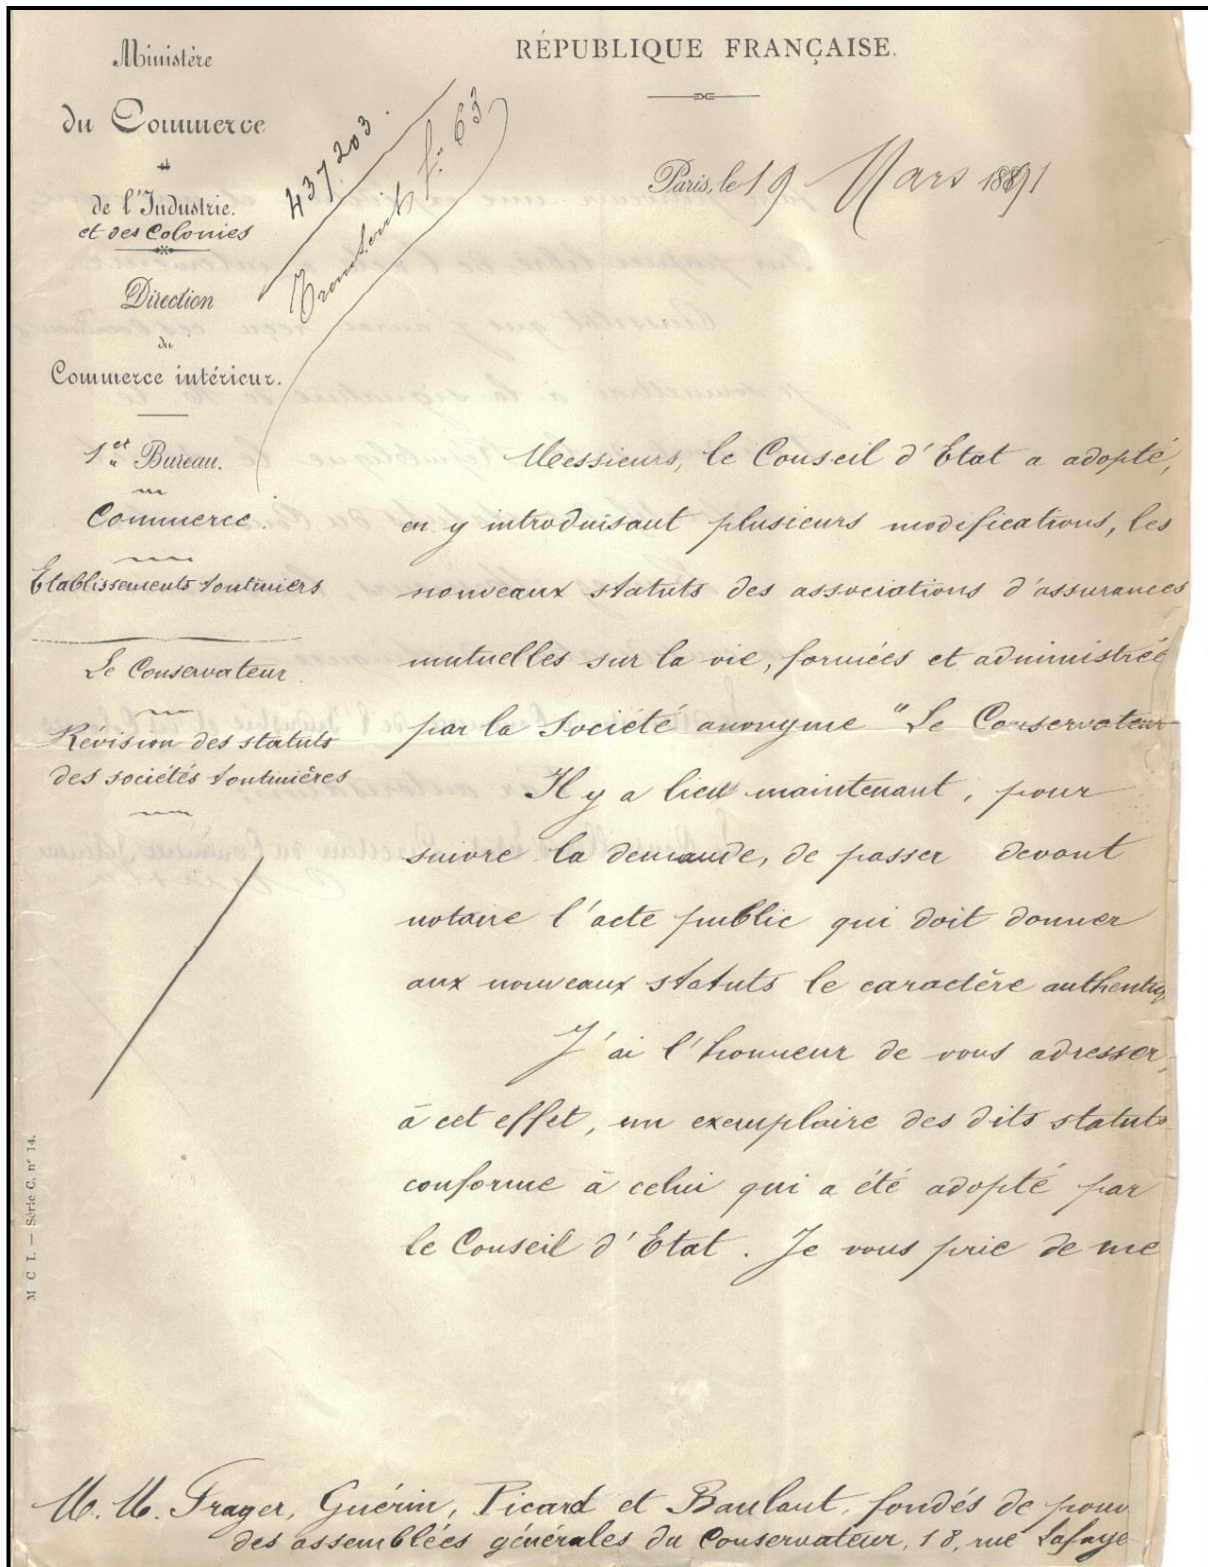 Ministère
du Commerce
de l'Industrie.
et des Colonies
Direction
du
Commerce intérieur.
1er Bureau.
Commerce.
Etablissements tontiniers
Le Conservateur.
Révision des statuts
des sociétés tontinières
437.203.
63
RÉPUBLIQUE FRANÇAISE.
Paris, le 19 Mars 1891
Messieurs, le Conseil d'Etat a adopté,
en y introduisant plusieurs modifications, les
nouveaux statuts des associations d'assurances
mutuelles sur la vie, formées et administrée
par la Société anonyme "Le Conservateur
Il y a lieu maintenant, pour
suivre la demande, de passer devant
notaire l'acte public qui doit donner
aux nouveaux statuts le caractère authentiq
J'ai l'honneur de vous adresser,
à cet effet, un exemplaire des dits statuts
conforme à celui qui a été adopté par
le Conseil d'Etat. Je vous prie de me
M. M. Frager, Guérin, Picard et Baulant, fondés de pouv
des assemblées générales du Conservateur, 18, rue Lafaye
M C I. — Série C, n° 14.